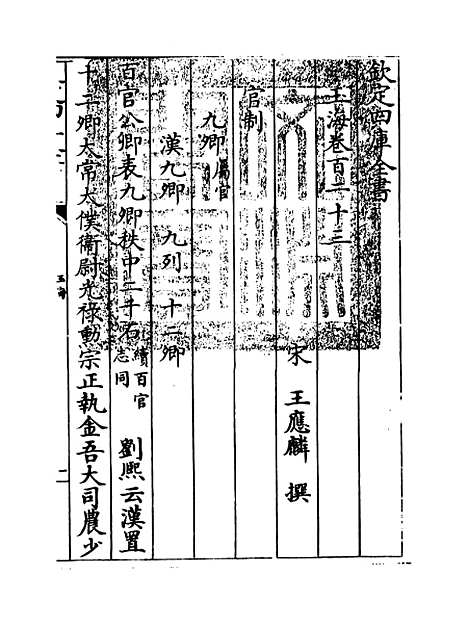 欽定四庫全書
玉海卷百二十三
宋 王應麟 撰
官制
九卿屬官
漢九卿 九列 十二卿
百官公卿表九卿秩中二千石續百官志同 劉熙云漢置
十二卿太常太僕衛尉光祿勳宗正執金吾大司農少